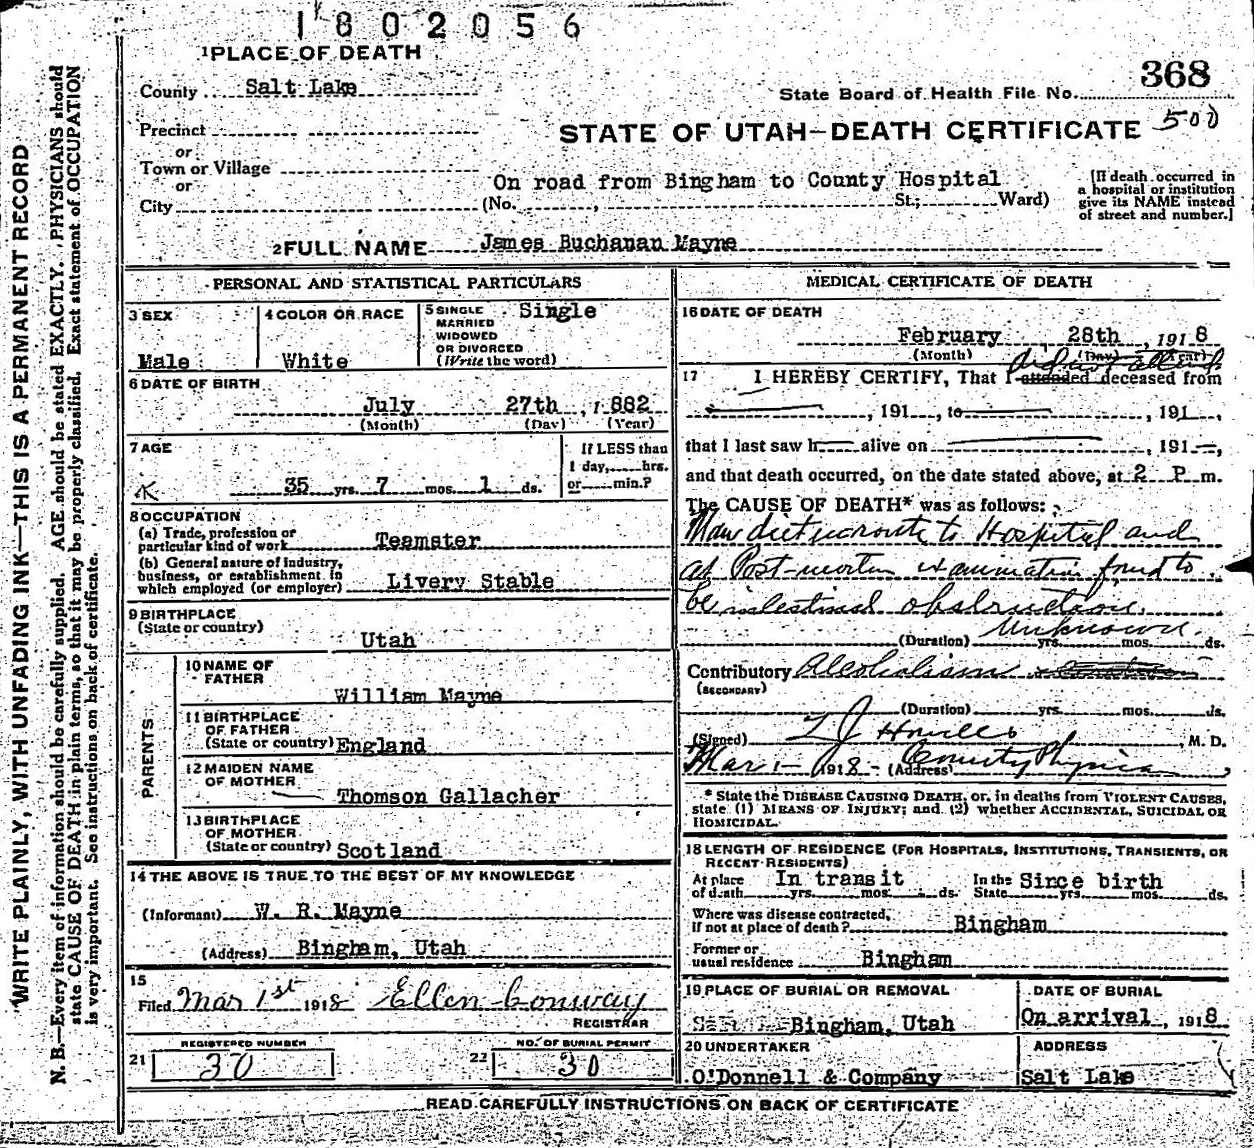 1802056
1 PLACE OF DEATH
County Salt Lake
368
State Board of Health File No.
Precinct
or
STATE OF UTAH—DEATH CERTIFICATE 500
Town or Village
or
On road from Bingham to County Hospital
City (No. , St.; Ward)
[If death occurred in
a hospital or institution
give its NAME instead
of street and number.]
2 FULL NAME James Buchanan Mayne
PERSONAL AND STATISTICAL PARTICULARS
3 SEX
Male
4 COLOR OR RACE
White
5 SINGLE Single
MARRIED
WIDOWED
OR DIVORCED
(Write the word)
6 DATE OF BIRTH
July 27th, 1882
(Month) (Day) (Year)
7 AGE
35 yrs. 7 mos. 1 ds.
If LESS than
1 day, hrs.
or min.?
8 OCCUPATION
(a) Trade, profession or
particular kind of work Teamster
(b) General nature of industry,
business, or establishment in
which employed (or employer) Livery Stable
9 BIRTHPLACE
(State or country)
Utah
PARENTS
10 NAME OF
FATHER
William Mayne
11 BIRTHPLACE
OF FATHER
(State or country) England
12 MAIDEN NAME
OF MOTHER
Thomson Gallacher
13 BIRTHPLACE
OF MOTHER
(State or country) Scotland
14 THE ABOVE IS TRUE TO THE BEST OF MY KNOWLEDGE
(Informant) W. R. Mayne
(Address) Bingham, Utah
15
Filed Mar 1st 1918 Ellen Conway
REGISTRAR
REGISTERED NUMBER
21 30
NO. OF BURIAL PERMIT
22 30
MEDICAL CERTIFICATE OF DEATH
16 DATE OF DEATH
February, 28th, 1918
(Month) (Day) (Year)
did not attend
17 I HEREBY CERTIFY, That I attended deceased from
, 191 , to , 191 ,
that I last saw h alive on , 191 ,
and that death occurred, on the date stated above, at 2 P. m.
The CAUSE OF DEATH* was as follows:
Man died enroute to Hospital and
at Post-mortem examination found to
be intestinal obstruction.
Unknown
(Duration) yrs. mos. ds.
Contributory Alcoholism
(SECONDARY)
(Duration) yrs. mos. ds.
(Signed) M. D.
Mar 1- 1918- (Address) County Physician
* State the DISEASE CAUSING DEATH, or, in deaths from VIOLENT CAUSES,
state (1) MEANS OF INJURY; and (2) whether ACCIDENTAL, SUICIDAL OR
HOMICIDAL.
18 LENGTH OF RESIDENCE (FOR HOSPITALS, INSTITUTIONS, TRANSIENTS, OR
RECENT RESIDENTS)
At place In transit In the Since birth
of death yrs. mos. ds. State yrs. mos. ds.
Where was disease contracted,
if not at place of death? Bingham
Former or
usual residence Bingham
19 PLACE OF BURIAL OR REMOVAL
Bingham, Utah
DATE OF BURIAL
On arrival, 1918
20 UNDERTAKER
O'Donnell & Company
ADDRESS
Salt Lake
READ CAREFULLY INSTRUCTIONS ON BACK OF CERTIFICATE
WRITE PLAINLY, WITH UNFADING INK—THIS IS A PERMANENT RECORD
N. B.—Every item of information should be carefully supplied. AGE should be stated EXACTLY. PHYSICIANS should
state CAUSE OF DEATH in plain terms, so that it may be properly classified. Exact statement of OCCUPATION
is very important. See instructions on back of certificate.